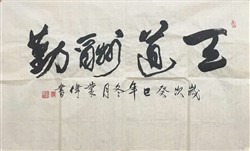 天道酬勤
歲次癸巳年冬月業偉書